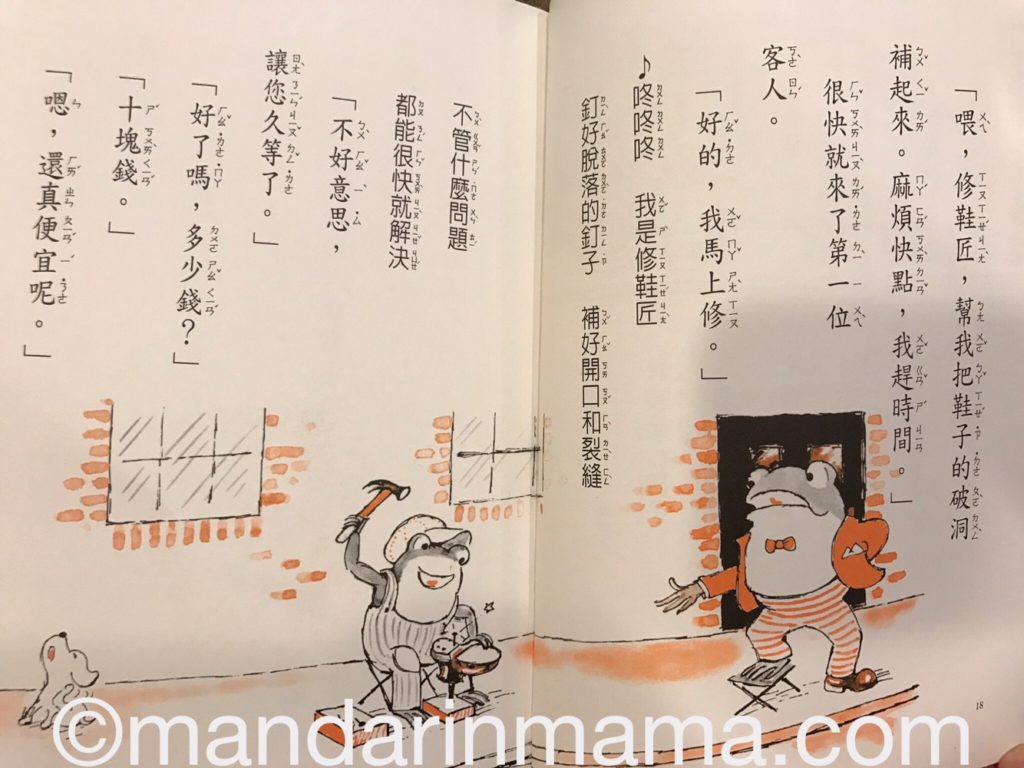 「喂，修鞋匠，幫我把鞋子的破洞
補起來。麻煩快點，我趕時間。」
很快就來了第一位
客人。
「好的，我馬上修。」
♪咚咚咚　我是修鞋匠
釘好脫落的釘子　補好開口和裂縫
不管什麼問題
都能很快就解決
「不好意思，
讓您久等了。」
「好了嗎，多少錢？」
「十塊錢。」
「嗯，還真便宜呢。」
18
©mandarinmama.com